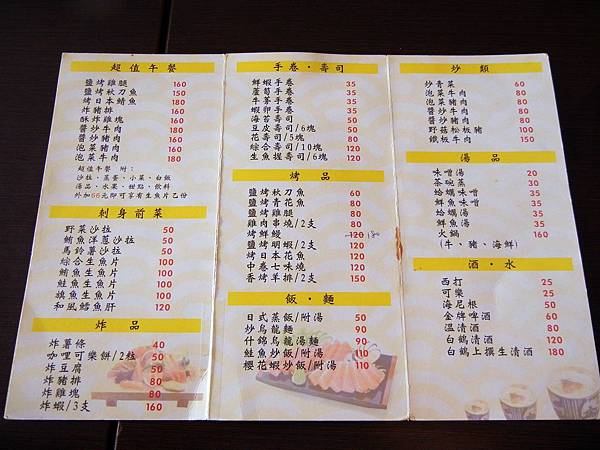 超值午餐
鹽烤雞腿 160
鹽烤秋刀魚 150
烤日本鯖魚 180
炸豬排 160
酥炸雞塊 160
醬炒牛肉 180
醬炒豬肉 160
泡菜豬肉 160
泡菜牛肉 180
超值午餐 附:
沙拉、蒸蛋、小菜、白飯
湯品、水果、甜點、飲料
外加66元即可享有生魚片乙份
刺身前菜
野菜沙拉 50
鮪魚洋蔥沙拉 50
馬鈴薯沙拉 50
綜合生魚片 100
鮪魚生魚片 100
鮭魚生魚片 100
旗魚生魚片 100
和風鱈魚肝 120
炸品
炸薯條 40
咖哩可樂餅/2粒 50
炸豆腐 50
炸豬排 80
炸雞塊 80
炸蝦/3支 160
手卷·壽司
鮮蝦手卷 35
蘆筍手卷 35
牛蒡手卷 35
蝦卵手卷 35
海苔壽司 50
豆皮壽司/6塊 50
花壽司/5塊 80
綜合壽司/10塊 120
生魚握壽司/6塊 120
烤品
鹽烤秋刀魚 60
鹽烤青花魚 80
鹽烤雞腿 80
雞肉串燒/2支 80
烤鮮鰻 120 180
鹽烤明蝦/2支 120
烤日本花魚 120
中卷七味燒 120
香烤羊排/2支 150
飯·麵
日式蒸飯/附湯 50
炒烏龍麵 90
什錦烏龍湯麵 90
鮭魚炒飯/附湯 110
櫻花蝦炒飯/附湯 110
炒類
炒青菜 60
泡菜牛肉 80
泡菜豬肉 80
醬炒牛肉 80
醬炒豬肉 80
野菇松板豬 100
鐵板牛肉 150
湯品
味噌湯 20
茶碗蒸 30
蛤蠣味噌 35
鮮魚味噌 35
蛤蠣湯 35
鮮魚湯 35
火鍋 160
(牛、豬、海鮮)
酒·水
西打 25
可樂 25
海尼根 50
金牌啤酒 60
溫清酒 80
白鶴清酒 120
白鶴上撰生清酒 180